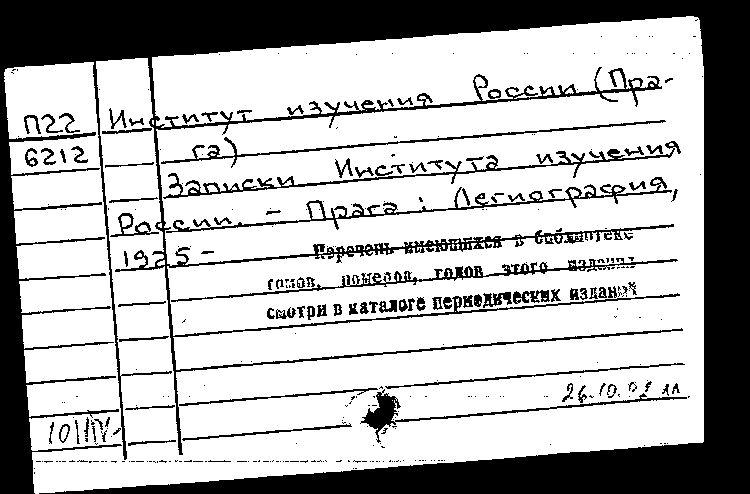 П22 Институт изучения России (Пра-
6212 га)
Записки Института изучения
России. - Прага: Легиография,
1925-
Перечень имеющихся в библиотеке
томов, номеров, годов этого издания
смотри в каталоге периодических изданий
26.10.